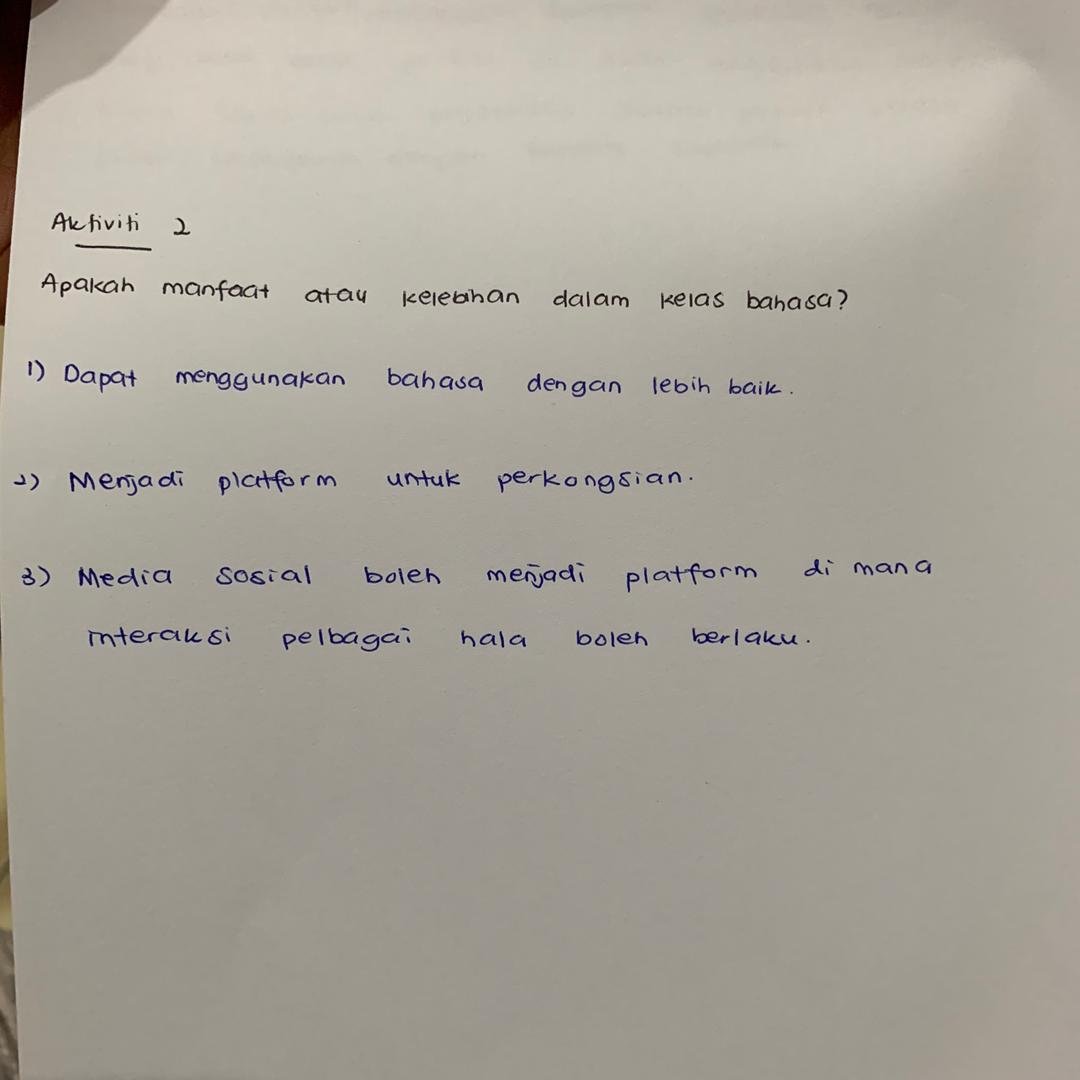 Aktiviti 2
Apakah manfaat atau kelebihan dalam kelas bahasa?
1) Dapat menggunakan bahasa dengan lebih baik.
2) Menjadi platform untuk perkongsian.
3) Media sosial boleh menjadi platform di mana
interaksi pelbagai hala boleh berlaku.